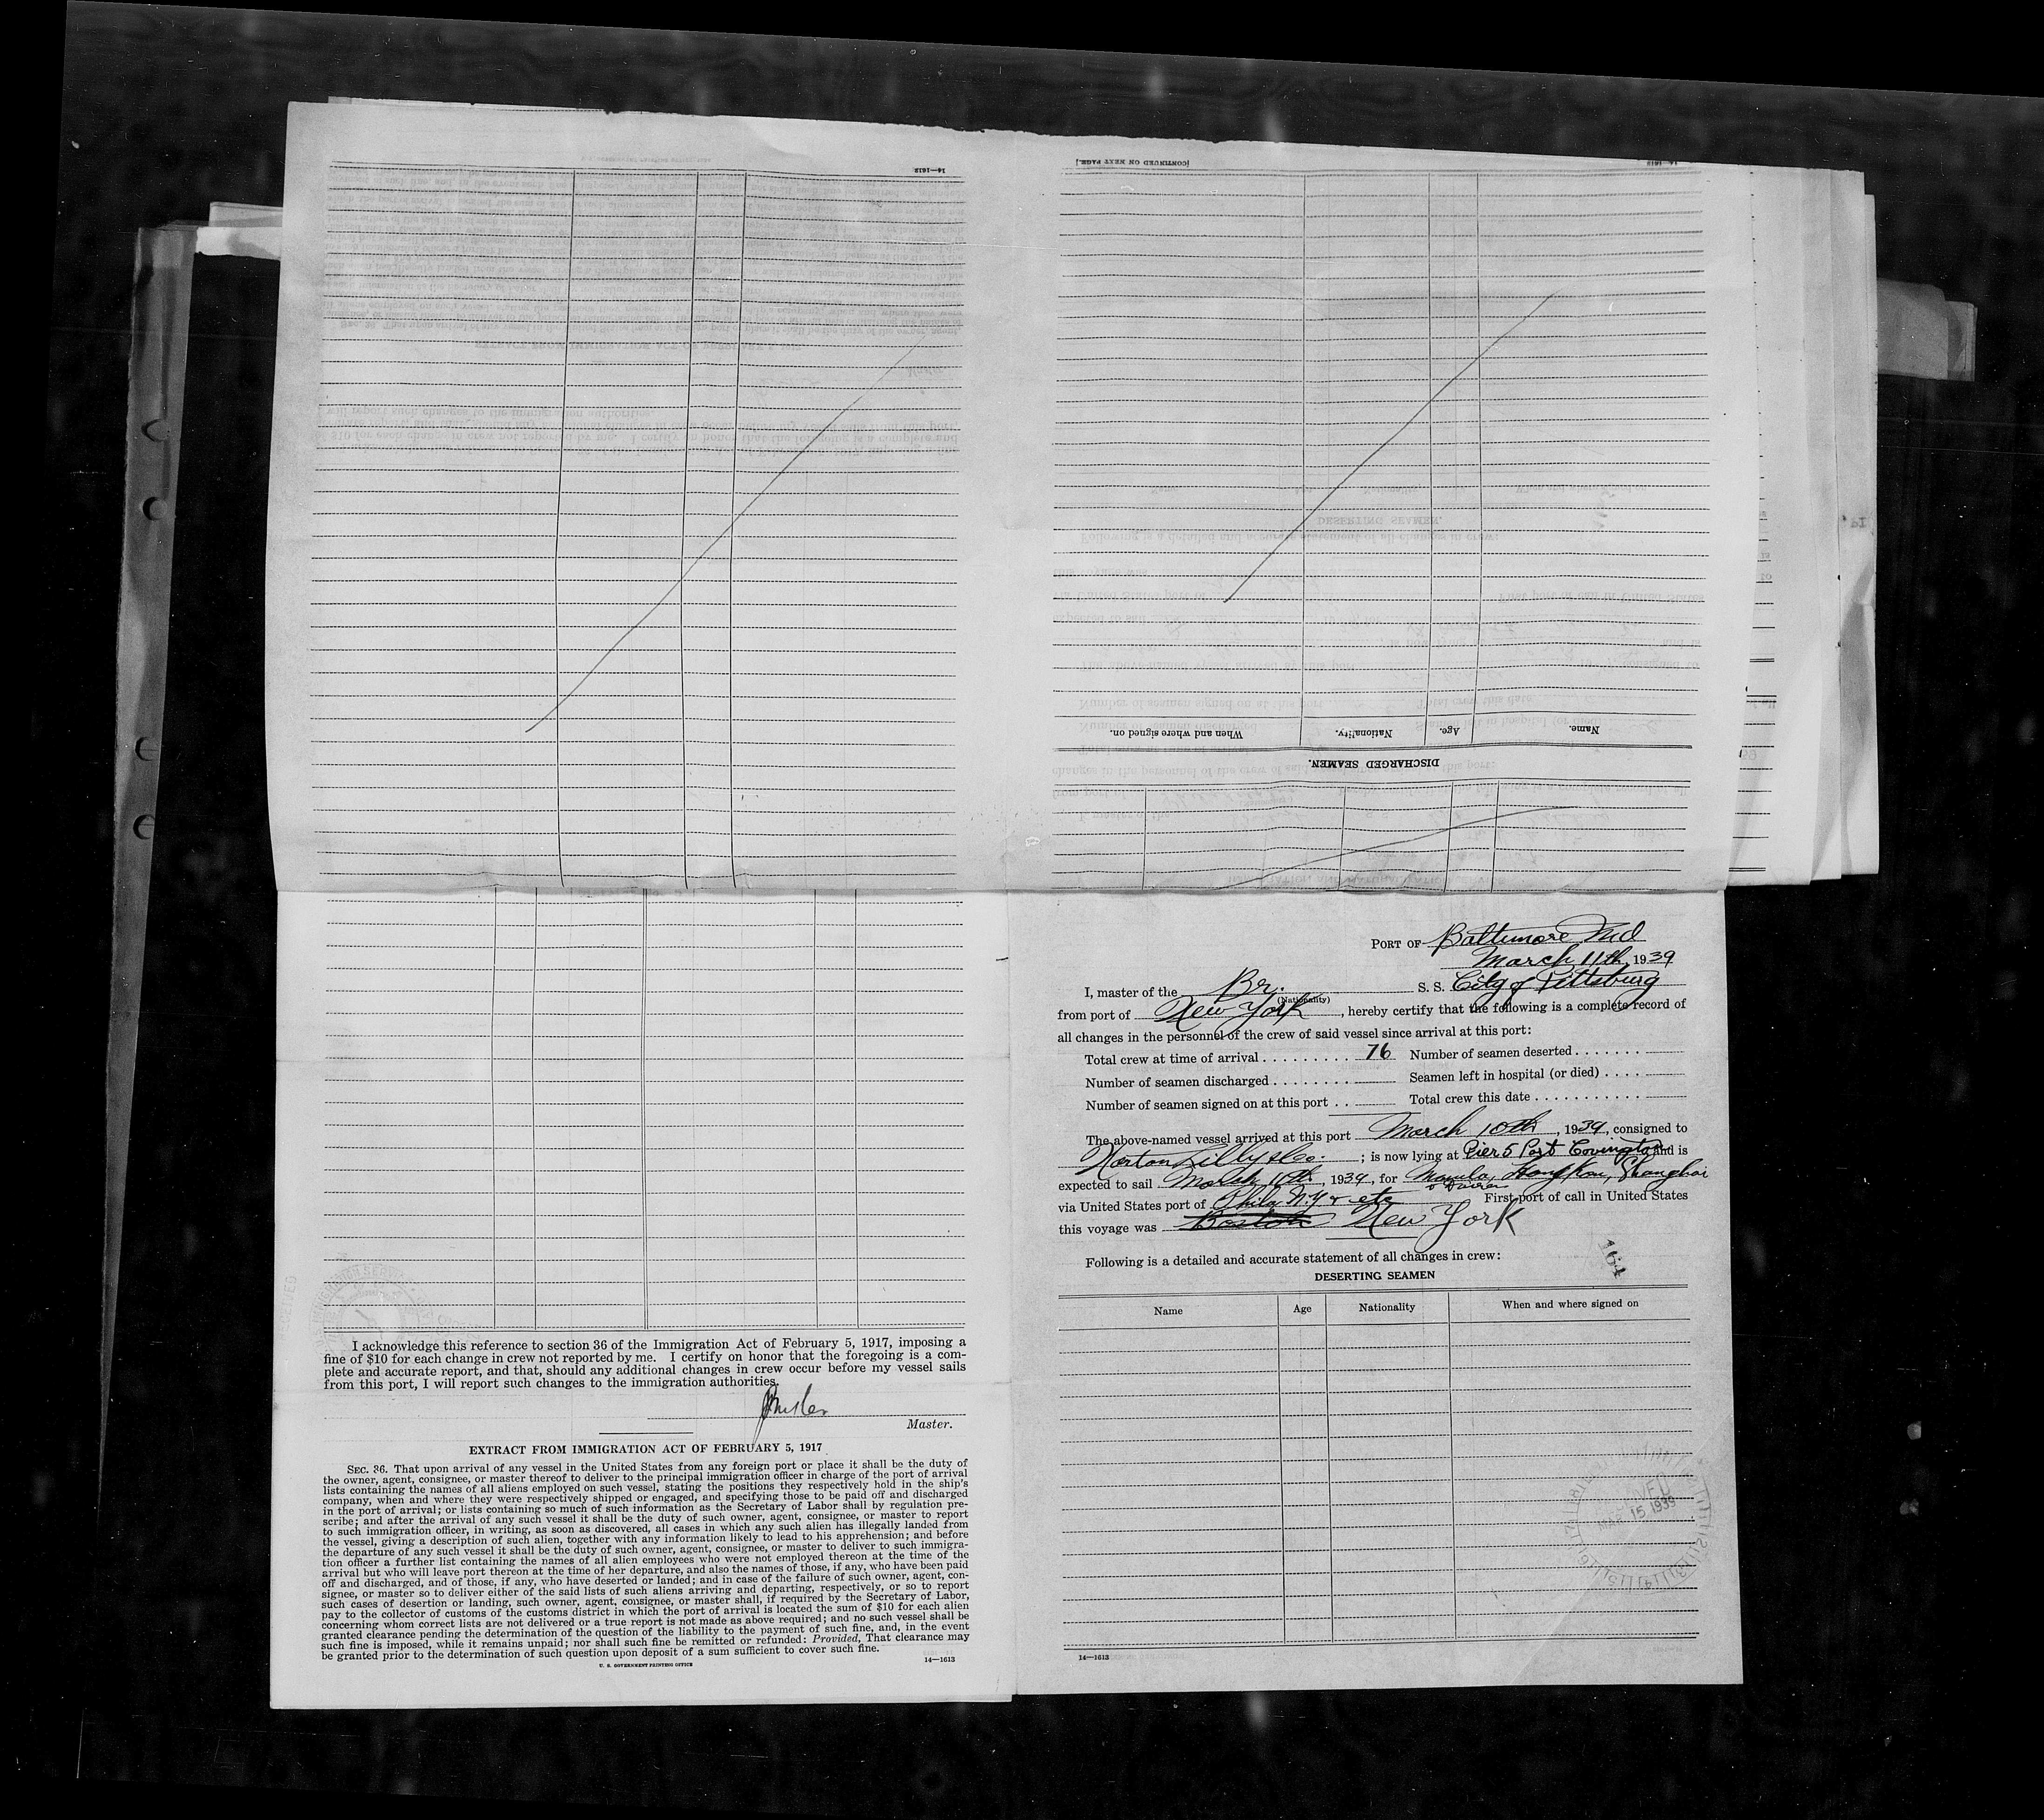 14—1612
[CONTINUED ON NEXT PAGE.]
When and where signed on.
Nationality.
Age.
Name.
DISCHARGED SEAMEN.
PORT OF Baltimore Md
March 11th, 1939
I, master of the Br. S. S. City of Pittsburg
(Nationality)
from port of New York, hereby certify that the following is a complete record of
all changes in the personnel of the crew of said vessel since arrival at this port:
Total crew at time of arrival . . . . . . . . . 76 Number of seamen deserted . . . . . . .
Number of seamen discharged . . . . . . . . Seamen left in hospital (or died) . . . .
Number of seamen signed on at this port . . Total crew this date . . . . . . . . . . .
The above-named vessel arrived at this port March 10th, 1939, consigned to
Norton Lilly & Co. ; is now lying at Pier 5 Port Covington and is
expected to sail March 11th, 1939, for Manila, Hong Kon, Shanghai
via United States port of Phila N.Y & etc First port of call in United States
this voyage was Boston New York
Following is a detailed and accurate statement of all changes in crew:
164
DESERTING SEAMEN
Name Age Nationality When and where signed on
15 1939
14—1613
I acknowledge this reference to section 36 of the Immigration Act of February 5, 1917, imposing a
fine of $10 for each change in crew not reported by me. I certify on honor that the foregoing is a com-
plete and accurate report, and that, should any additional changes in crew occur before my vessel sails
from this port, I will report such changes to the immigration authorities.
Master.
EXTRACT FROM IMMIGRATION ACT OF FEBRUARY 5, 1917
SEC. 36. That upon arrival of any vessel in the United States from any foreign port or place it shall be the duty of
the owner, agent, consignee, or master thereof to deliver to the principal immigration officer in charge of the port of arrival
lists containing the names of all aliens employed on such vessel, stating the positions they respectively hold in the ship's
company, when and where they were respectively shipped or engaged, and specifying those to be paid off and discharged
in the port of arrival; or lists containing so much of such information as the Secretary of Labor shall by regulation pre-
scribe; and after the arrival of any such vessel it shall be the duty of such owner, agent, consignee, or master to report
to such immigration officer, in writing, as soon as discovered, all cases in which any such alien has illegally landed from
the vessel, giving a description of such alien, together with any information likely to lead to his apprehension; and before
the departure of any such vessel it shall be the duty of such owner, agent, consignee, or master to deliver to such immigra-
tion officer a further list containing the names of all alien employees who were not employed thereon at the time of the
arrival but who will leave port thereon at the time of her departure, and also the names of those, if any, who have been paid
off and discharged, and of those, if any, who have deserted or landed; and in case of the failure of such owner, agent, con-
signee, or master so to deliver either of the said lists of such aliens arriving and departing, respectively, or so to report
such cases of desertion or landing, such owner, agent, consignee, or master shall, if required by the Secretary of Labor,
pay to the collector of customs of the customs district in which the port of arrival is located the sum of $10 for each alien
concerning whom correct lists are not delivered or a true report is not made as above required; and no such vessel shall be
granted clearance pending the determination of the question of the liability to the payment of such fine, and, in the event
such fine is imposed, while it remains unpaid; nor shall such fine be remitted or refunded: Provided, That clearance may
be granted prior to the determination of such question upon deposit of a sum sufficient to cover such fine.
U. S. GOVERNMENT PRINTING OFFICE
14—1613